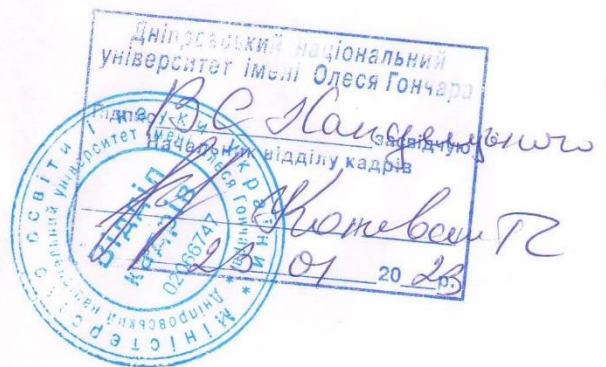 Дніпровський національний
університет імені Олеся Гончара
Підпис В С засвідчую
Начальник відділу кадрів
23 01 20 23 р.
Міністерство освіти і науки України *
Дніпровський національний університет імені Олеся Гончара
Відділ
кадрів
02066747